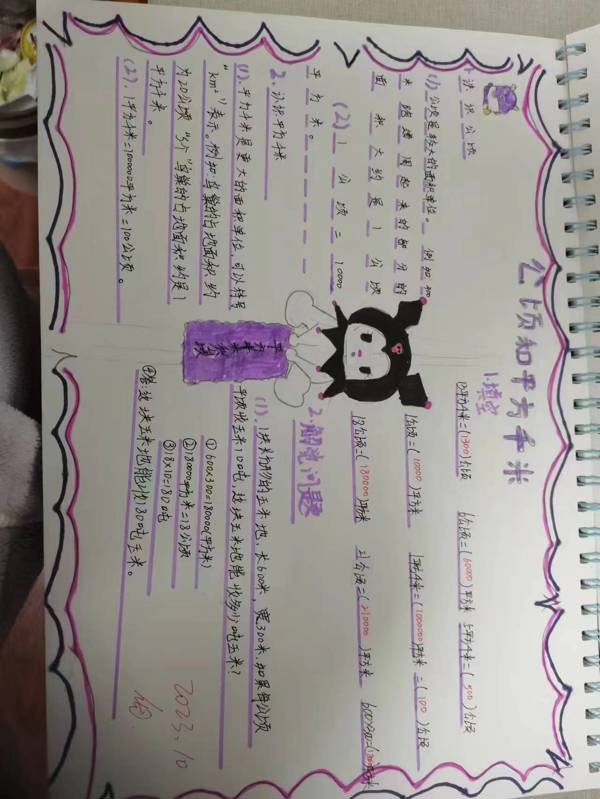 公顷和平方千米
1.认识公顷
(1).公顷是较大的面积单位。例如:400
米跑道围起来的部分的
面积大约是1公顷
(2)1公顷=10000
平方米。
2.认识平方千米
(1).平方千米是更大的面积单位,可以符号
"km²"表示。例如:鸟巢的占地面积约
为20公顷 "5个"鸟巢的占地面积约是1
平方千米。
(2).1平方千米=1000000平方米=100公顷。
1.填空
13平方千米=(1300)公顷
6公顷=(60000)平方米
5平方千米=(500)公顷
1公顷=(10000)平方米
1平方千米=(1000000)平方米=(100)公顷
18公顷=(180000)平方米
21公顷=(210000)平方米
2.解决问题
(1).1块长方形的玉米地,长600米,宽300米,如果每公顷
平收玉米10吨,这块玉米地能收多少吨玉米?
①600×300=180000(平方米)
②180000平方米=18公顷
③18×10=180吨
④答:这块玉米地能收180吨玉米。
2023.10